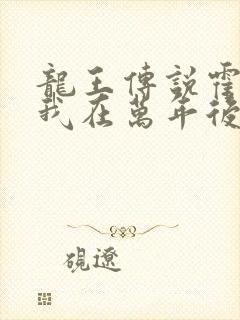 龍王傳說霍
我在萬年後
硯遼